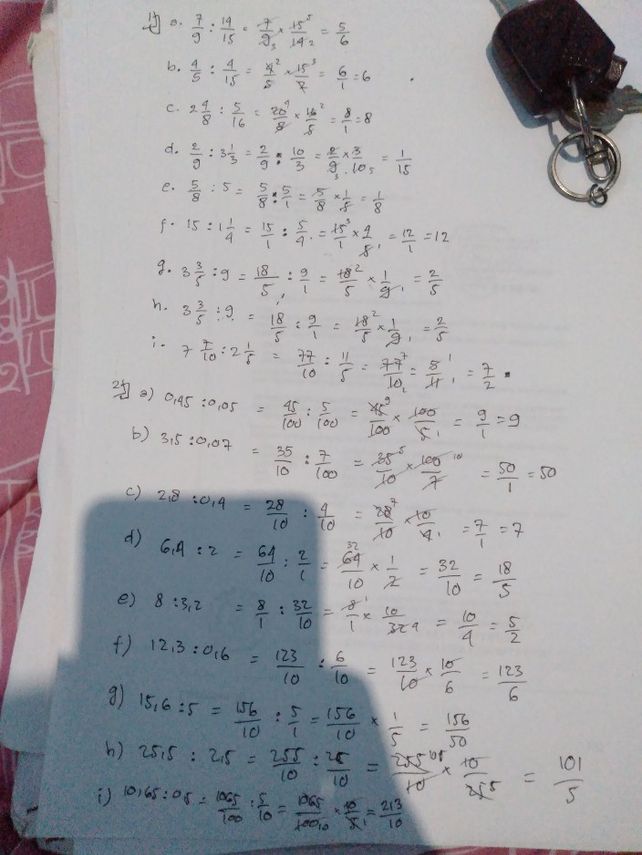 1) a. 7/9 : 14/15 = 7/9₃ × 15⁵/14₂ = 5/6
b. 4/5 : 4/15 = 4²/5 × 15³/2 = 6/1 = 6
c. 2 4/8 : 5/16 = 20⁴/8 × 16²/5 = 8/1 = 8
d. 2/9 : 3 1/3 = 2/9 : 10/3 = 2/9₃ × 3/10₅ = 1/15
e. 5/8 : 5 = 5/8 : 5/1 = 5/8 × 1/5 = 1/8
f. 15 : 1 1/4 = 15/1 : 5/4 = 15³/1 × 4/5₁ = 12/1 = 12
g. 3 3/5 : 9 = 18/5 : 9/1 = 18²/5 × 1/9₁ = 2/5
h. 3 3/5 : 9 = 18/5 : 9/1 = 18²/5 × 1/9₁ = 2/5
i. 7 7/10 : 2 1/5 = 77/10 : 11/5 = 77⁷/10₂ = 5¹/11₁ = 7/2
2) a) 0,45 : 0,05 = 45/100 : 5/100 = 45⁹/100 × 100/5₁ = 9/1 = 9
b) 3,5 : 0,07 = 35/10 : 7/100 = 35⁵/10 × 100¹⁰/7 = 50/1 = 50
c) 2,8 : 0,4 = 28/10 : 4/10 = 28⁷/10 × 10/4₁ = 7/1 = 7
d) 6,4 : 2 = 64/10 : 2/1 = 64³²/10 × 1/2 = 32/10 = 18/5
e) 8 : 3,2 = 8/1 : 32/10 = 8¹/1 × 10/32₄ = 10/4 = 5/2
f) 12,3 : 0,6 = 123/10 : 6/10 = 123/10 × 10/6 = 123/6
g) 15,6 : 5 = 156/10 : 5/1 = 156/10 × 1/5 = 156/50
h) 25,5 : 2,5 = 255/10 : 25/10 = 255/10 × 10/25⁵ = 101/5
i) 10,65 : 0,5 = 1065/100 : 5/10 = 1065/100₁₀ × 10/5₁ = 213/10